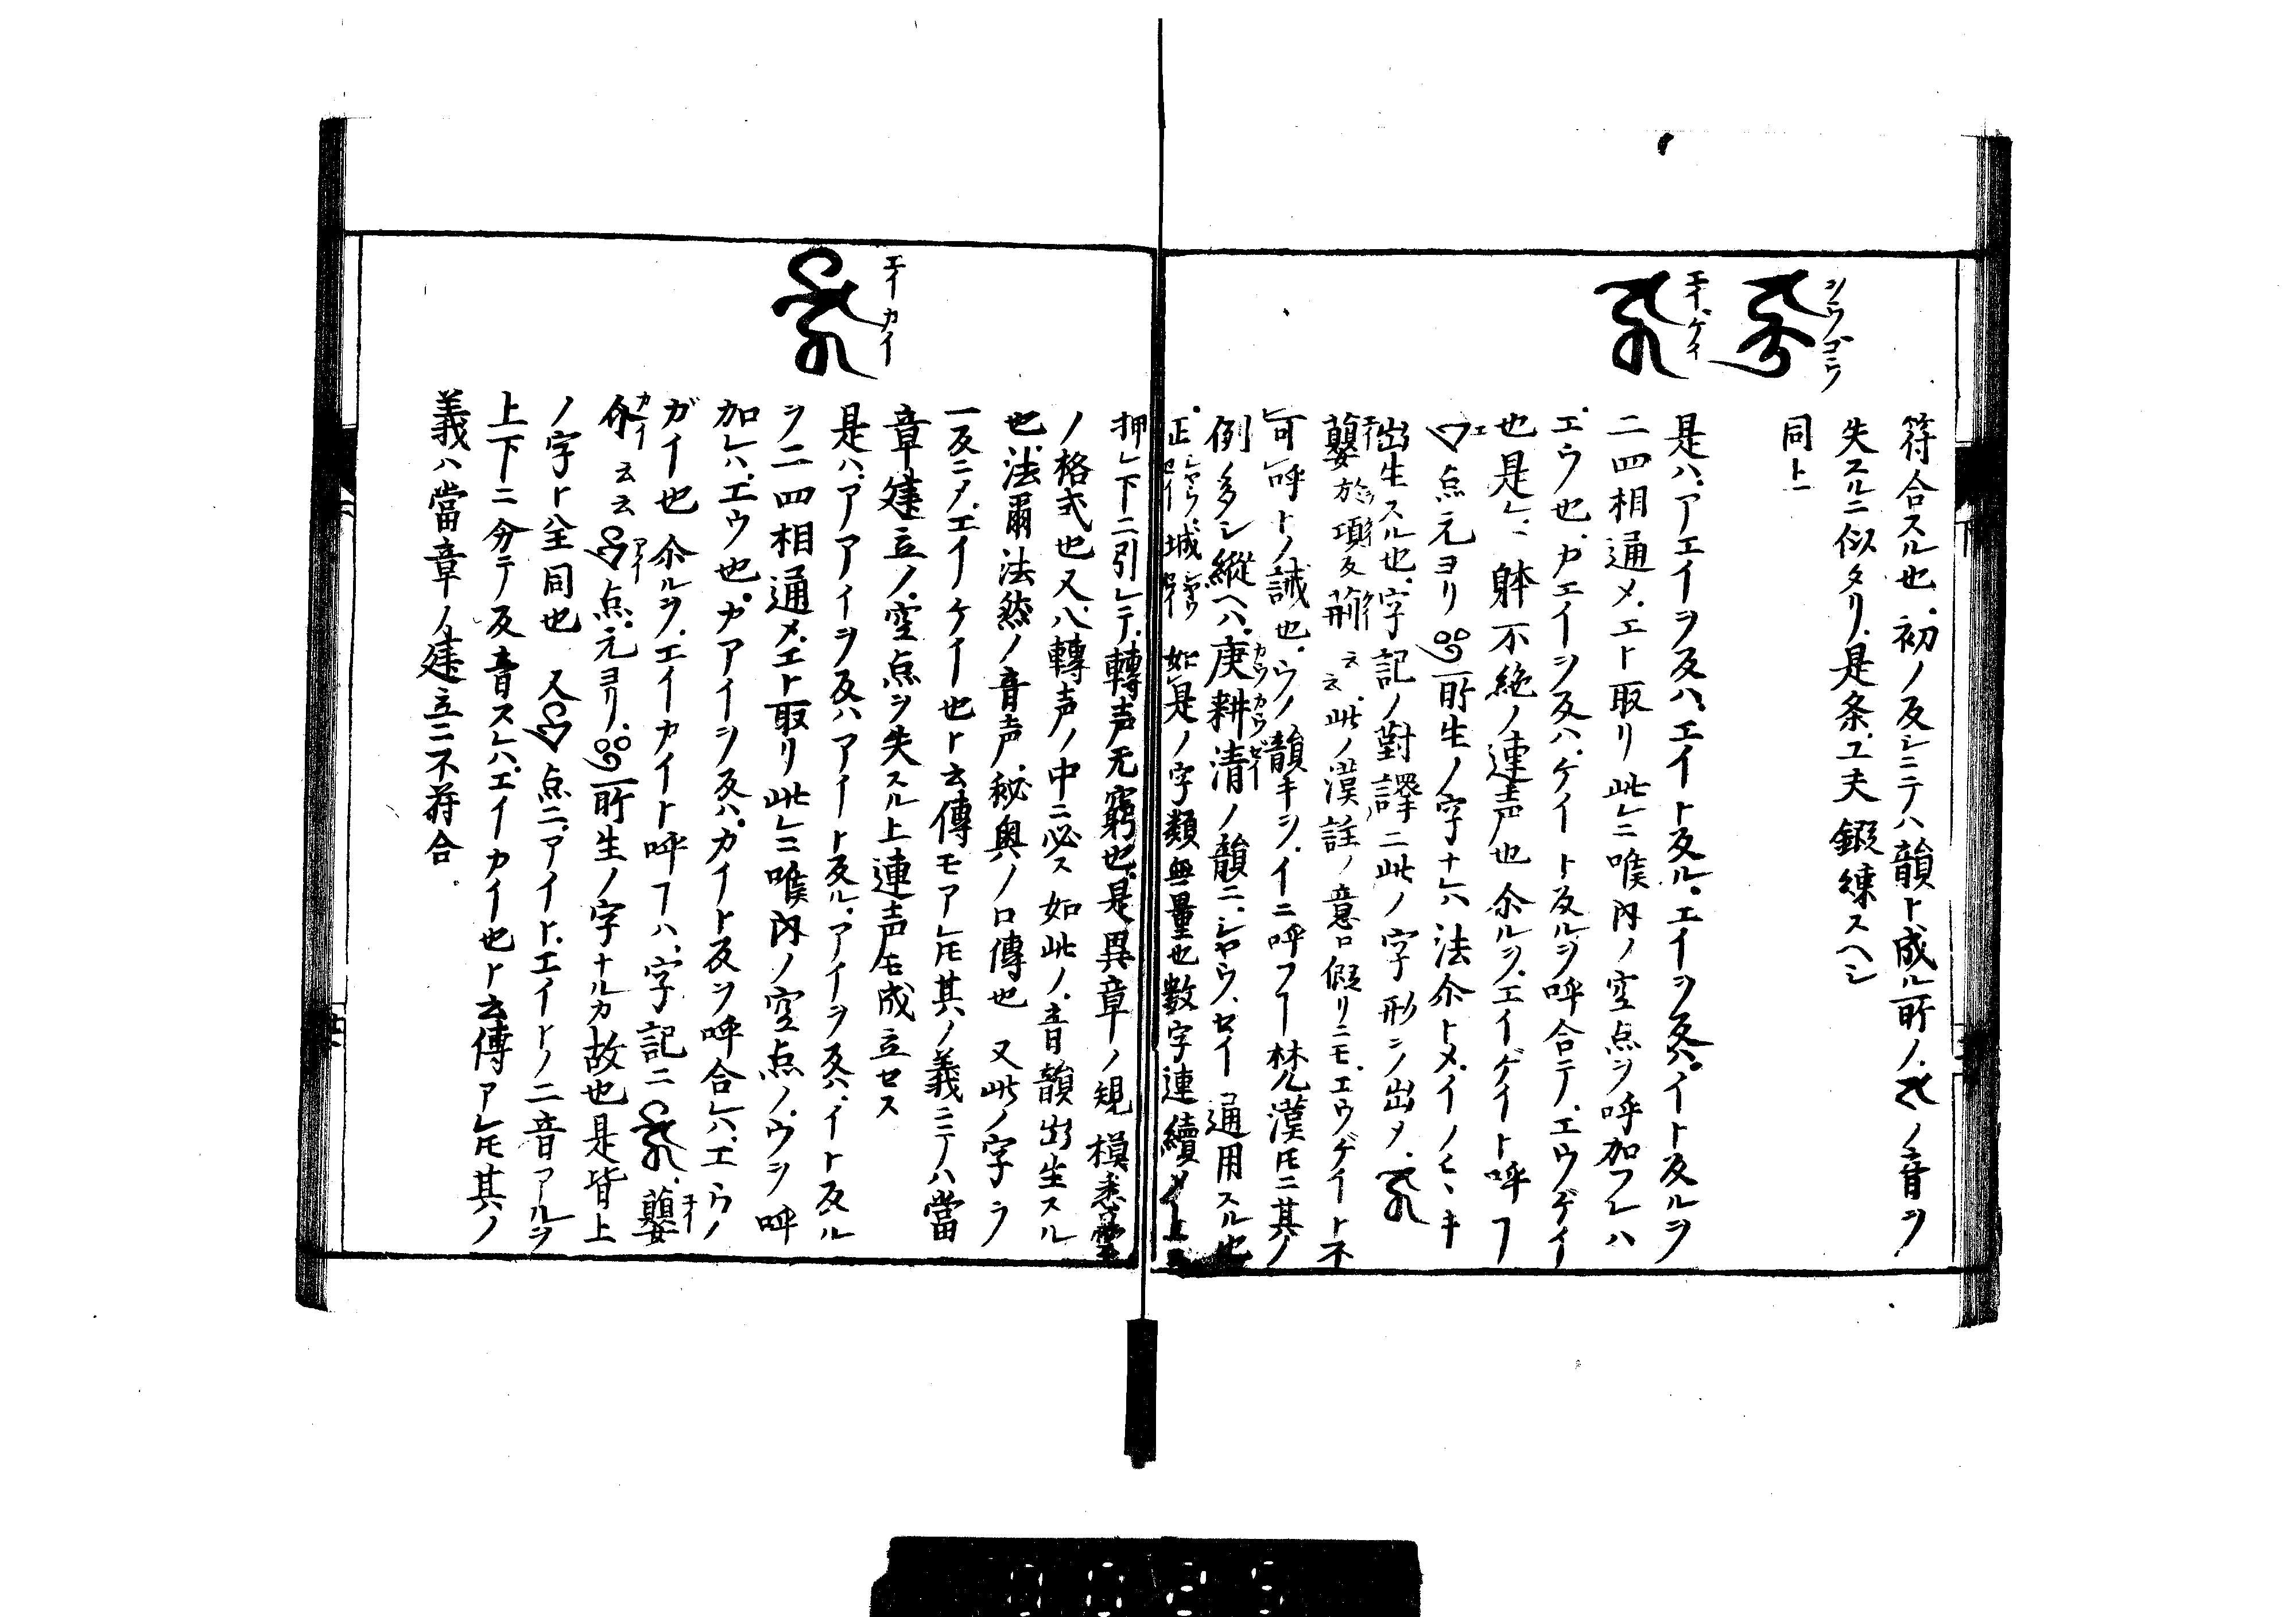 符合スル也初ノ反シニテハ韻ト成ル所ノノ音ヲ
失スルニ似タリ是条工夫鍜練スヘシ
シウゴウ
同ト一
エイゲイ
是ハアエイヲ反ハエイト反ルエイヲ反ハイト反ルヲ
二四相通メエト取リ此レニ喉内ノ空点ヲ呼加フレハ
エウ也カエイヲ反ハケイト反ルヲ呼合テエウゲイ
也是レ躰不絶ノ連声也尒ルヲエイゲイト呼フヿ
エ点元ヨリ所生ノ字ナレハ法尒トメイノヒヽキ
出生スル也字記ノ對譯ニ此ノ字形ヲ出メ
於項反云云此ノ漢註ノ意ロ假リニモエウゲイト不
可呼トノ誡也ウノ韻キヲイニ呼フヿ梵漢トモニ其ノ
例多シ縦ヘハ庚耕清ノ韻ニシヤウセイ通用スル也
正城如是ノ字類無量也数字連續メ上ヲ
押レ下ニ引レテ轉声无窮也是異章ノ規模悉曇
ノ格式也又八轉声ノ中ニ必ス如此ノ音韻出生スル
也法爾法然ノ音声秘奥ノ口傳也又此ノ字ヲ
一反ニメエイケイ也ト云傳モアレトモ其ノ義ニテハ當
章建立ノ空点ヲ失スル上連声モ成立セス
エイカイ
是ハアアイヲ反ハアイト反ルアイヲ反ハイト反ル
ヲ二四相通メエト取リ此レニ喉内ノ空点ノウヲ呼
加レハエウ也カアイヲ反ハカイト反ヲ呼合レハエウノ
ガイ也尒ルヲエイカイト呼フヿハ字記ニ
云云アイ点元ヨリ所生ノ字ナルカ故也是皆上
ノ字ト全同也又点ニアイトエイトノ二音アルヲ
上下ニ分テ反音スレハエイカイ也ト云傳アレトモ其ノ
義ハ當章ノ建立ニ不符合